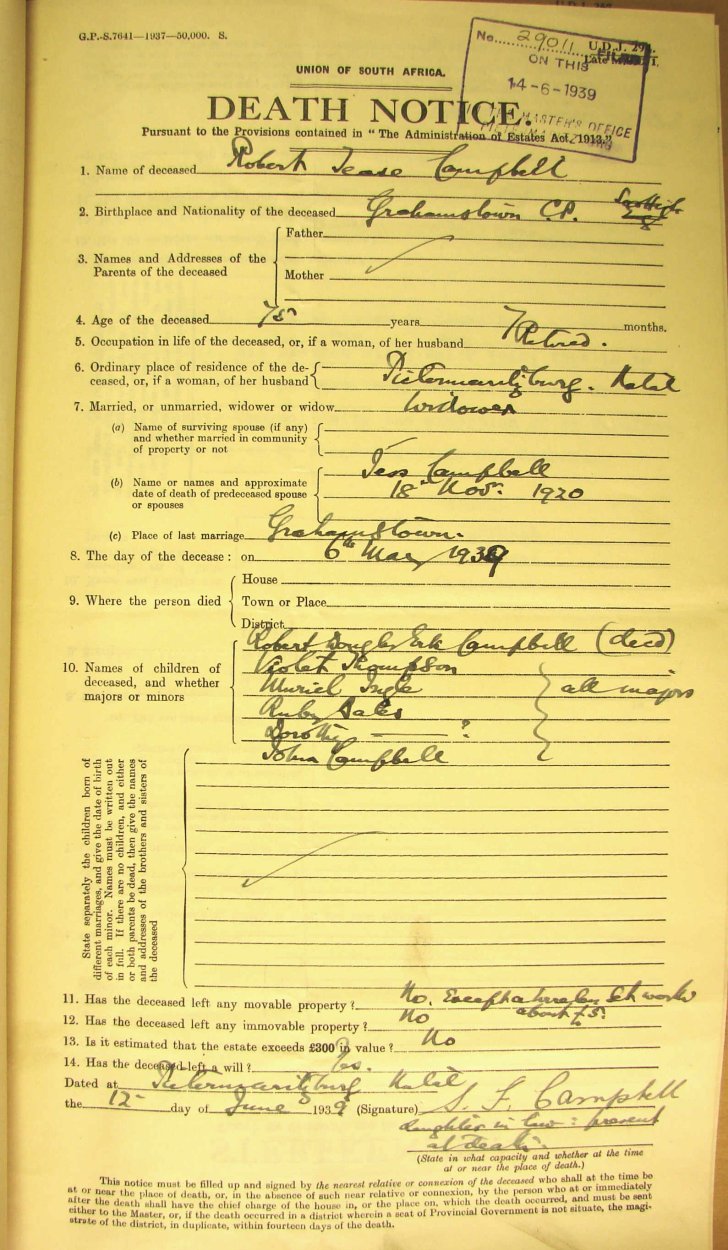 G.P.-S.7641—1937—50,000. S.
U.D.J. 29
No. 29011
ON THIS
14-6-1939
MASTER'S OFFICE
UNION OF SOUTH AFRICA.
DEATH NOTICE.
Pursuant to the Provisions contained in "The Administration of Estates Act, 1913."
1. Name of deceased Robert Tease Campbell
2. Birthplace and Nationality of the deceased Grahamstown C.P.
3. Names and Addresses of the Parents of the deceased
Father
Mother
4. Age of the deceased 75 years 7 months.
5. Occupation in life of the deceased, or, if a woman, of her husband Retired.
6. Ordinary place of residence of the de-
ceased, or, if a woman, of her husband Pietermaritzburg. Natal
7. Married, or unmarried, widower or widow Widower
(a) Name of surviving spouse (if any)
and whether married in community
of property or not
(b) Name or names and approximate
date of death of predeceased spouse
or spouses
Tess Campbell
18 Nov. 1920
(c) Place of last marriage Grahamstown.
8. The day of the decease: on 6th May 1939
9. Where the person died
House
Town or Place
District
10. Names of children of
deceased, and whether
majors or minors
Robert Douglas Erk Campbell (decd)
Violet Thompson
Muriel Ingle
Ruby Sales
Dorothy — ?
John Campbell
all majors
State separately the children born of
different marriages, and give the date of birth
of each minor. Names must be written out
in full. If there are no children, and either
or both parents be dead, then give the names
and addresses of the brothers and sisters of
the deceased
11. Has the deceased left any movable property? No. Except a wireless Set worth
about £5.
12. Has the deceased left any immovable property? No
13. Is it estimated that the estate exceeds £300 in value? No
14. Has the deceased left a will? Yes.
Dated at Pietermaritzburg Natal
the 12 day of June 1939 (Signature) S. F. Campbell
daughter in law: present
at death.
(State in what capacity and whether at the time
at or near the place of death.)
This notice must be filled up and signed by the nearest relative or connexion of the deceased who shall at the time be
at or near the place of death, or, in the absence of such near relative or connexion, by the person who at or immediately
after the death shall have the chief charge of the house in, or the place on, which the death occurred, and must be sent
either to the Master, or, if the death occurred in a district wherein a seat of Provincial Government is not situate, the magi-
strate of the district, in duplicate, within fourteen days of the death.